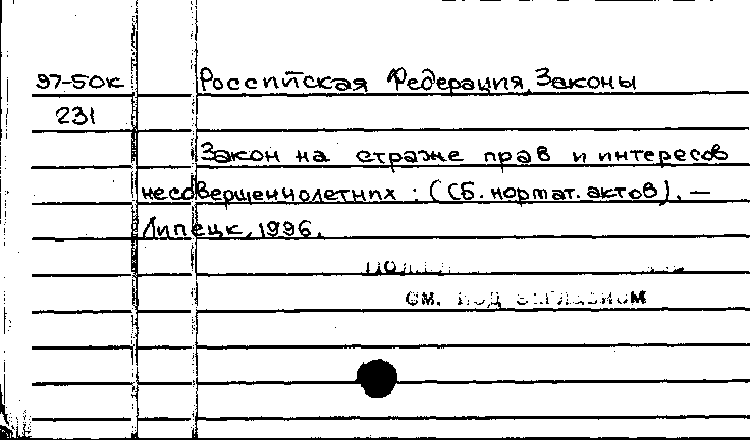 97-50к Российская Федерация. Законы
231
Закон на страже прав и интересов
несовершеннолетних : (Сб. нормат. актов). —
Липецк, 1996.
см. под заглавием